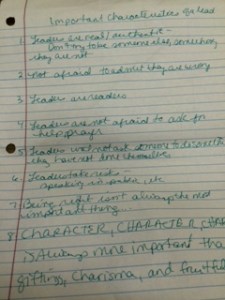 Important Characteristics of a lead
1. Leaders are real/authentic -
Don't try to be someone else, something
they are not
2. not afraid to admit they are wrong
3. Leaders are readers
4. Leaders are not afraid to ask for
help/prayer
5. Leaders will not ask someone to do something
they have not done themselves
6. Leaders take risks -
speaking in public, etc
7. Being right isn't always the most
important thing
8. CHARACTER, CHARACTER,
is always more important tha
gifting, charisma, and fruitful